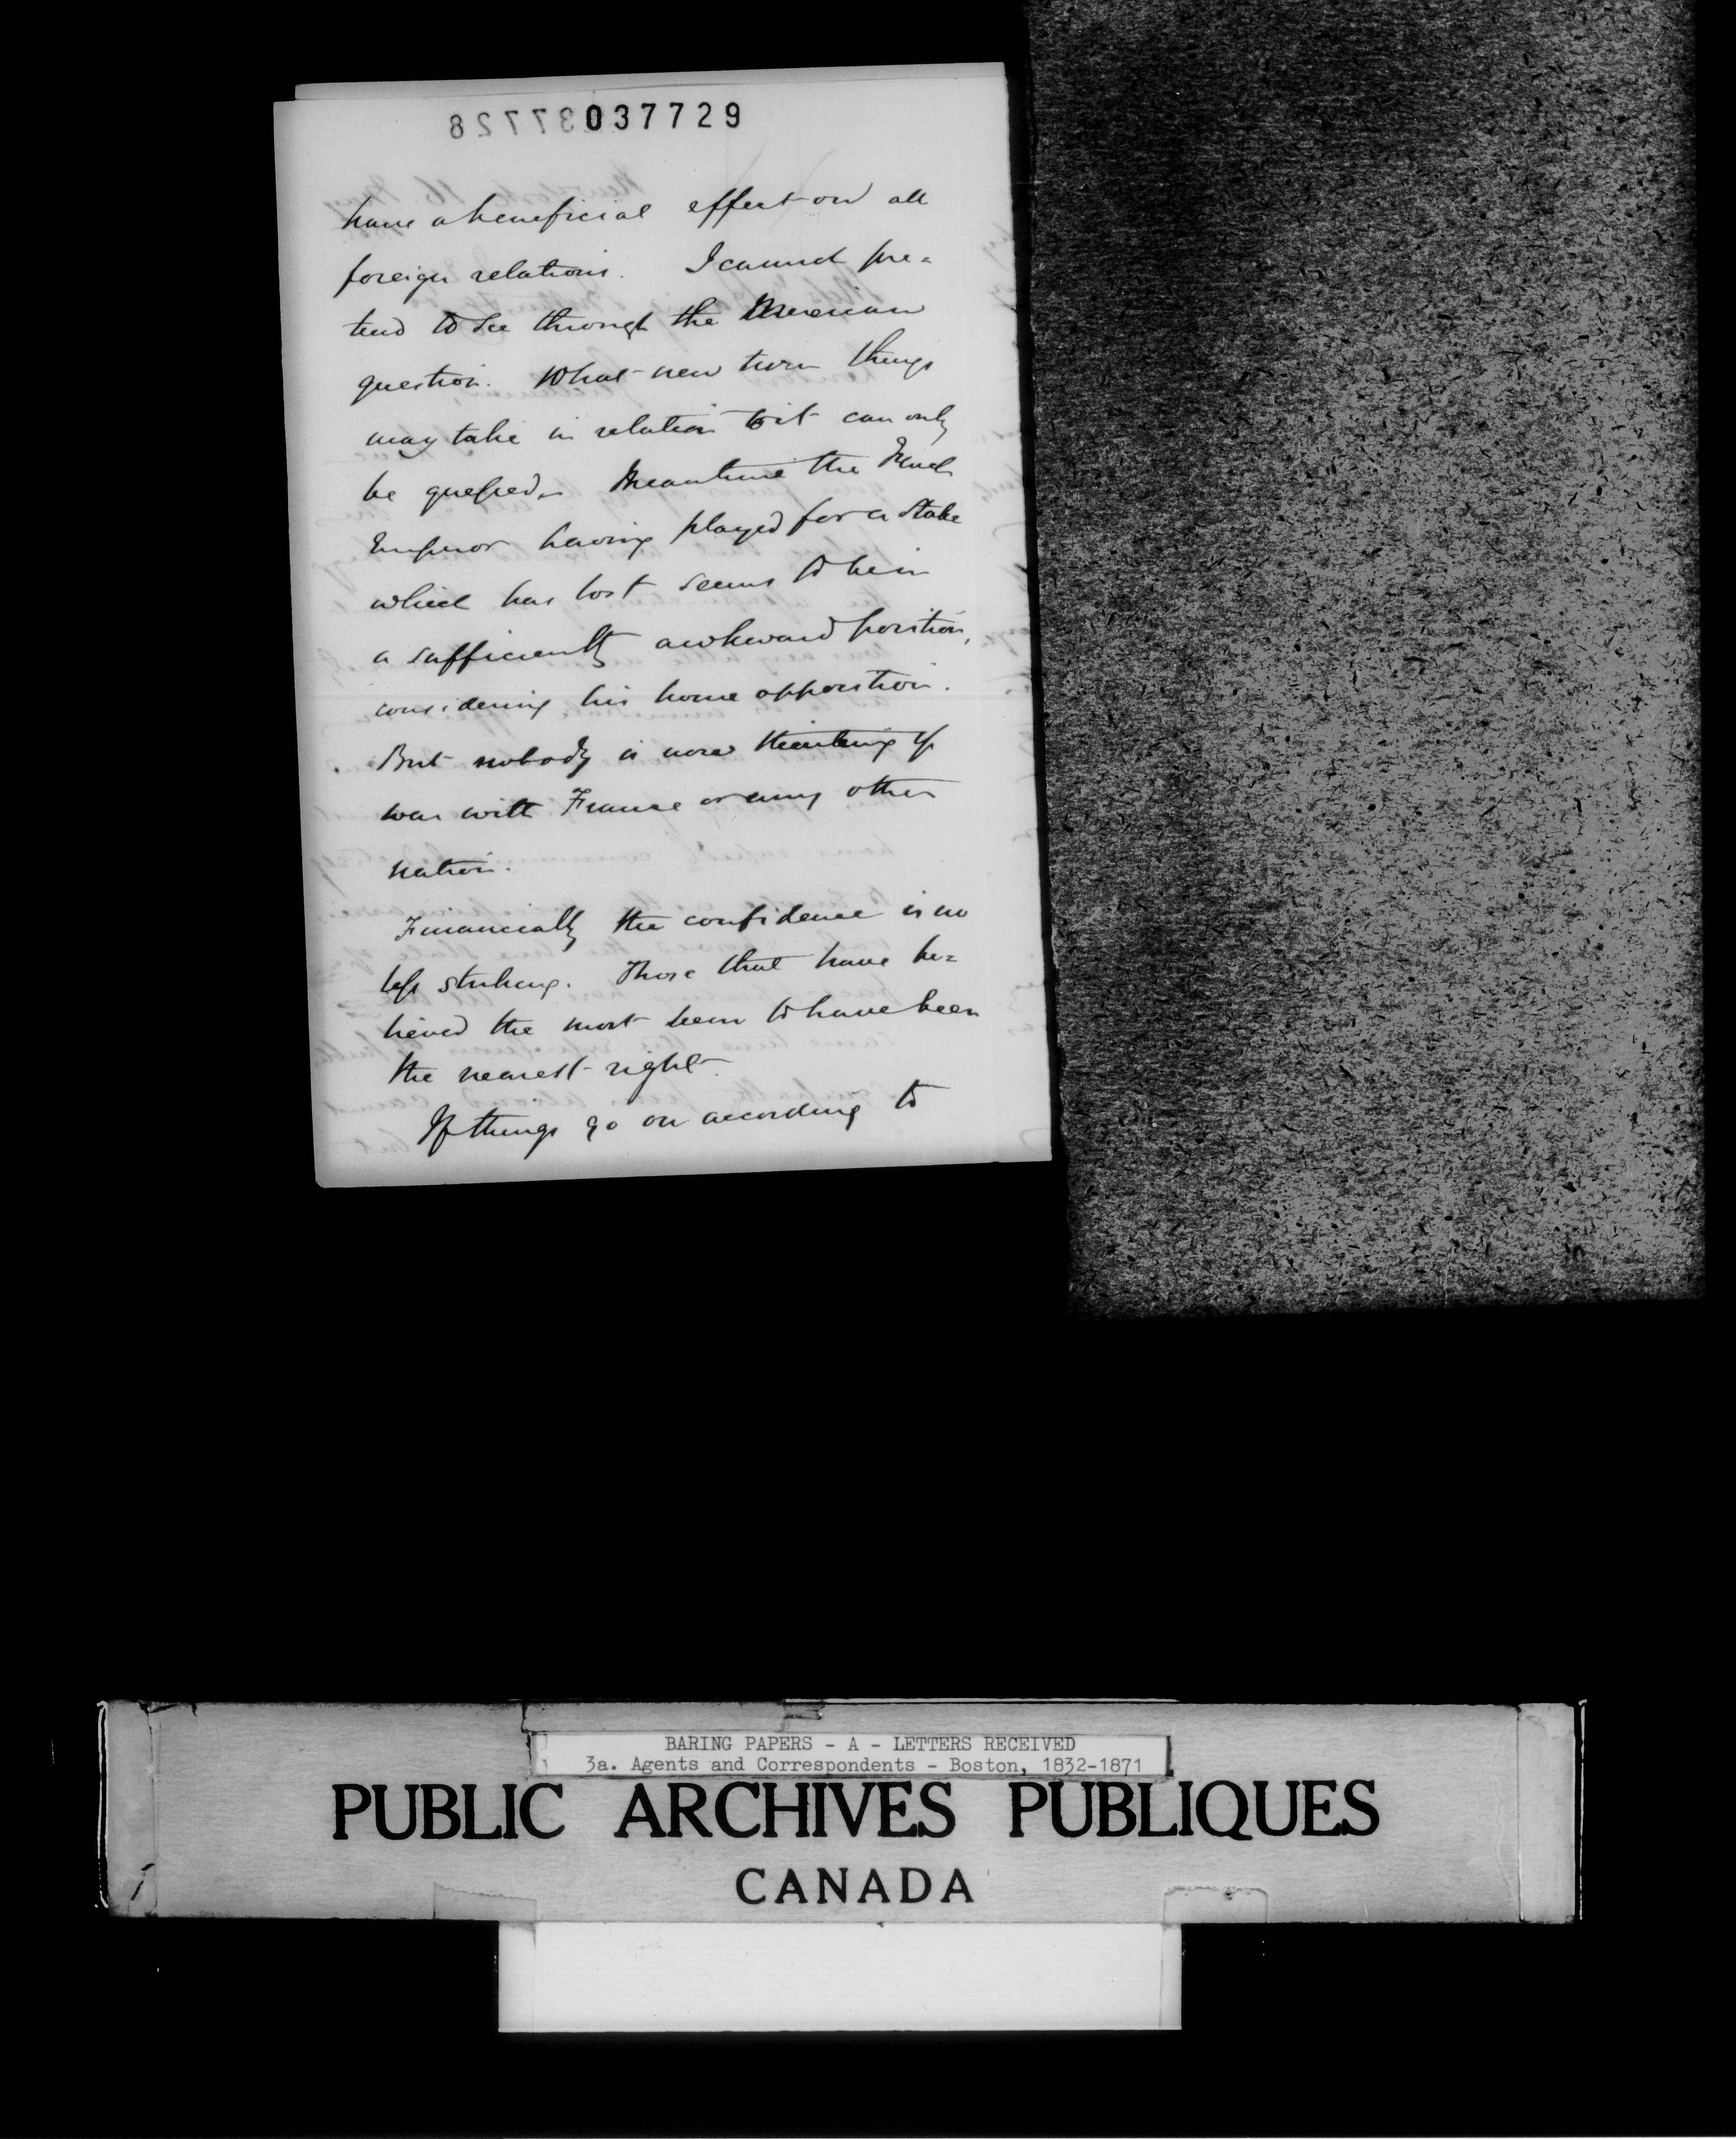 037729
have a beneficial effect on all
foreign relations. I cannot pre=
tend to see through the Mexican
question. What new turn things
may take in relation to it can only
be guessed. Meantime the French
Emperor having played for a stake
which has lost seems to be in
a sufficiently awkward position,
considering his home opposition.
But nobody is now thinking of
war with France or any other
nation.
Financially the confidence is no
less striking. Those that have be=
lieved the most seem to have been
the nearest right.
If things go on according to
BARING PAPERS - A - LETTERS RECEIVED
3a. Agents and Correspondents - Boston, 1832-1871
PUBLIC ARCHIVES PUBLIQUES
CANADA